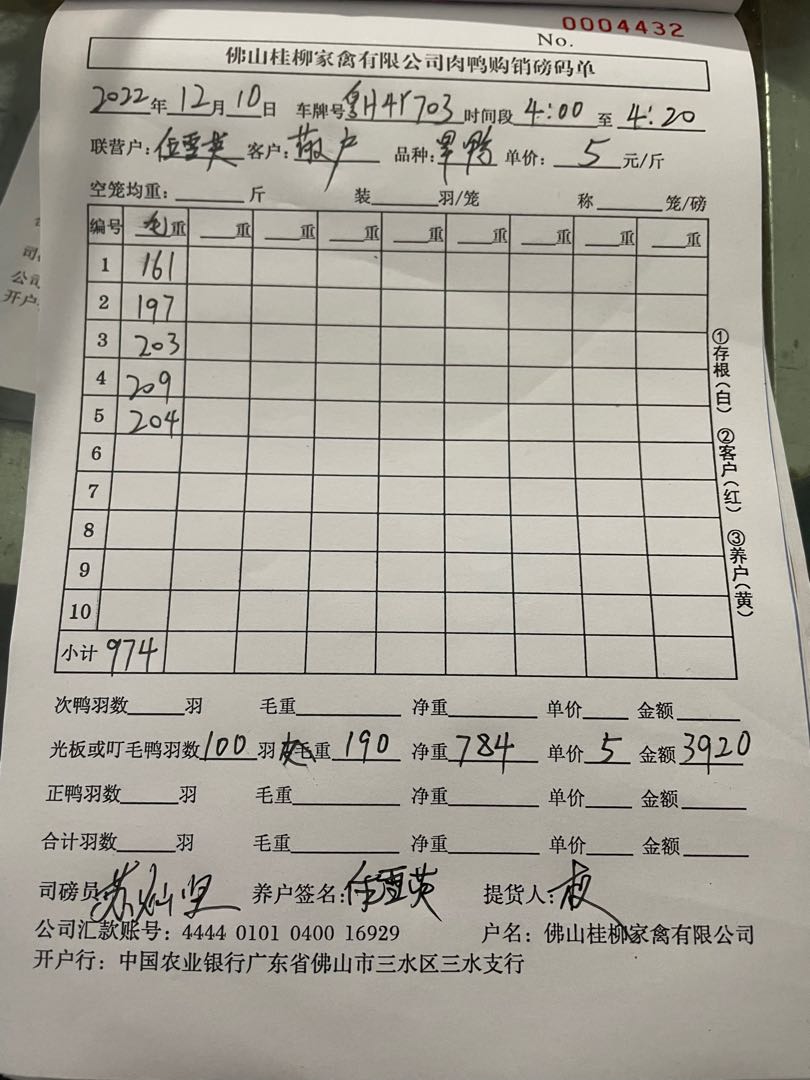 No. 0004432
佛山桂柳家禽有限公司肉鸭购销磅码单
2022年12月10日 车牌号粤H4Y703 时间段4:00至4:20
联营户: 伍雪英 客户: 散户 品种: 旱鸭 单价: 5 元/斤
空笼均重: 斤 装 羽/笼 称 笼/磅
编号 毛重 重 重 重 重 重 重 重
1 161
2 197
3 203
4 209
5 204
6
7
8
9
10
小计 974
①存根(白) ②客户(红) ③养户(黄)
次鸭羽数 羽 毛重 净重 单价 金额
光板或叮毛鸭羽数100羽 毛重190 净重784 单价5 金额3920
正鸭羽数 羽 毛重 净重 单价 金额
合计羽数 羽 毛重 净重 单价 金额
司磅员: 养户签名: 伍雪英 提货人:
公司汇款账号: 4444 0101 0400 16929 户名: 佛山桂柳家禽有限公司
开户行: 中国农业银行广东省佛山市三水区三水支行